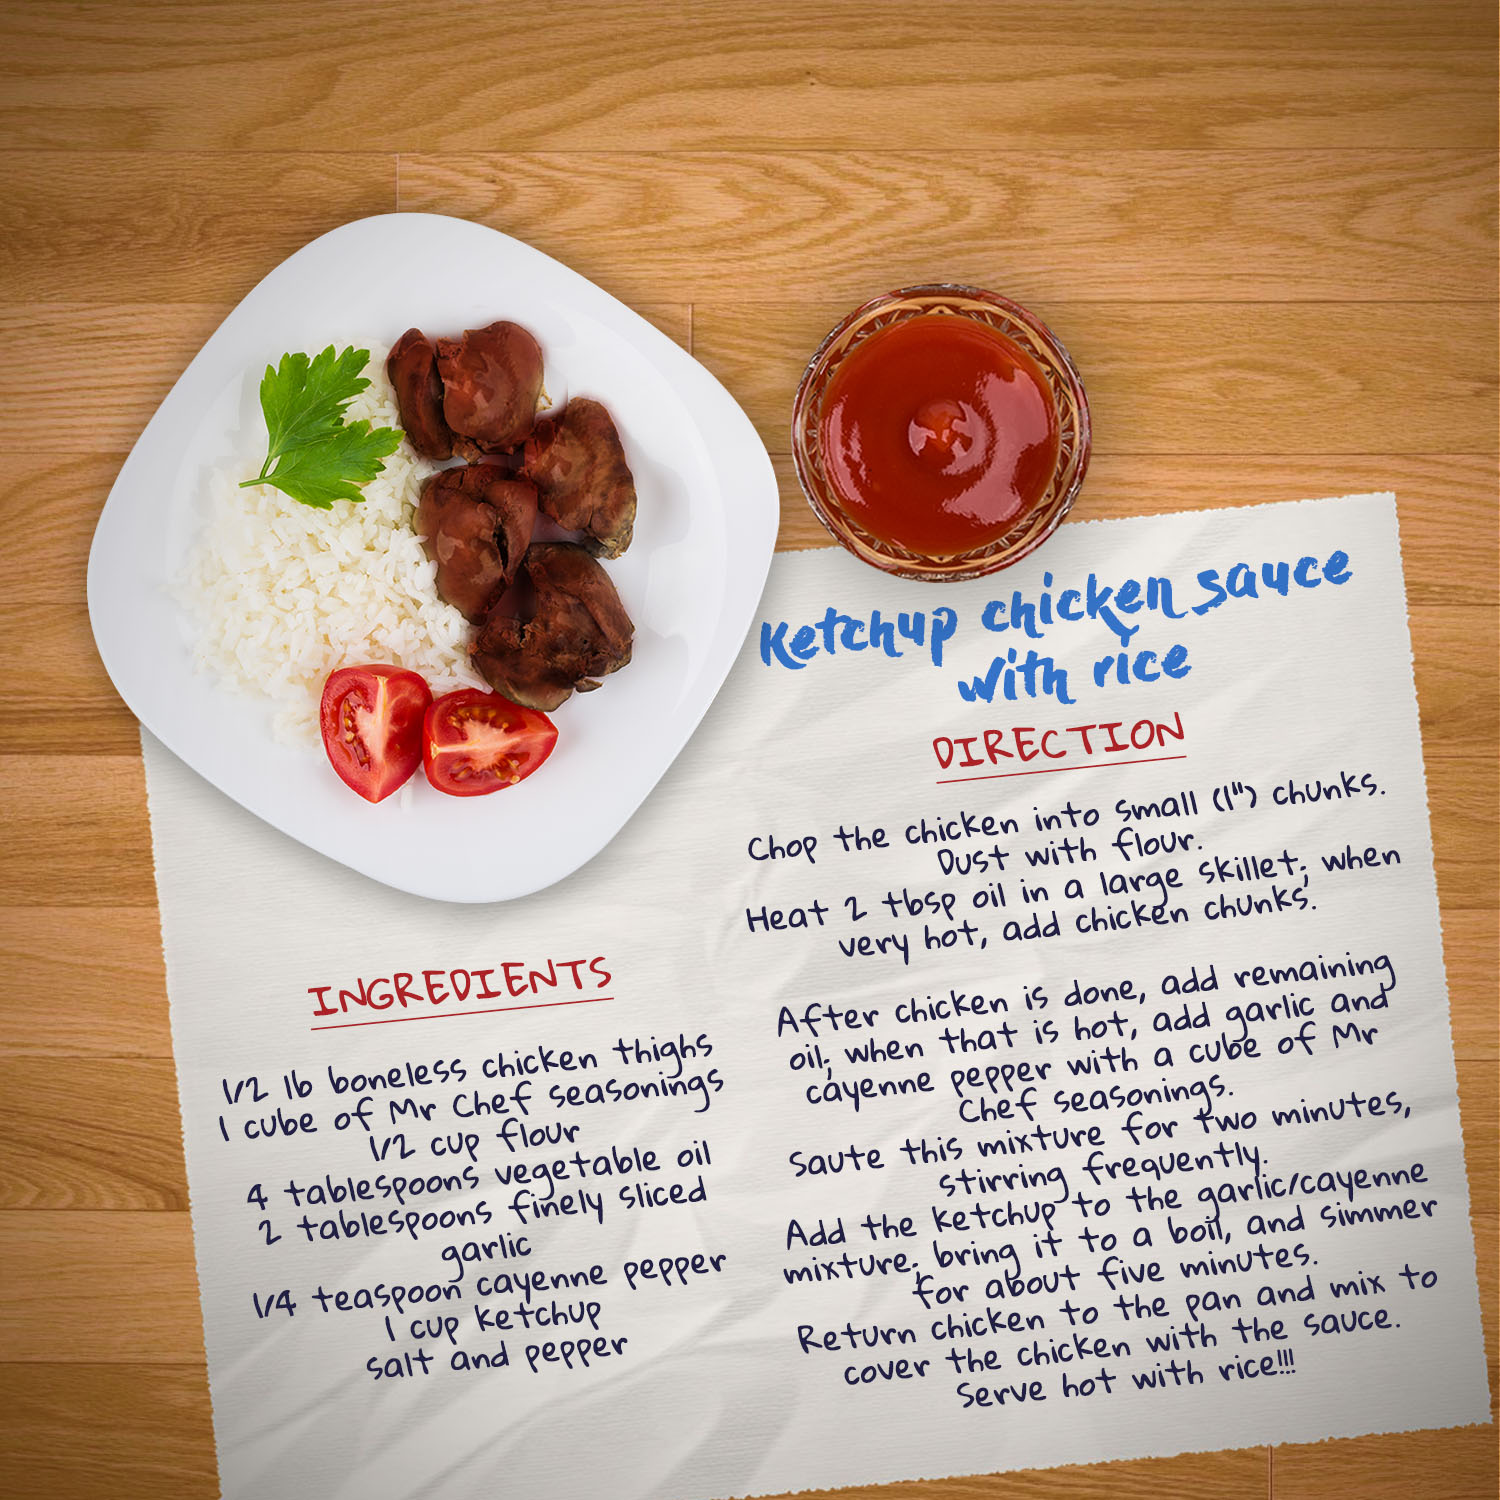 Ketchup chicken sauce
with rice
DIRECTION
Chop the chicken into small (1") chunks.
Dust with flour.
Heat 2 tbsp oil in a large skillet; when
very hot, add chicken chunks.
After chicken is done, add remaining
oil; when that is hot, add garlic and
cayenne pepper with a cube of Mr
Chef seasonings.
Saute this mixture for two minutes,
stirring frequently.
Add the ketchup to the garlic/cayenne
mixture; bring it to a boil, and simmer
for about five minutes.
Return chicken to the pan and mix to
cover the chicken with the sauce.
Serve hot with rice!!!
INGREDIENTS
1/2 lb boneless chicken thighs
1 cube of Mr Chef seasonings
1/2 cup flour
4 tablespoons vegetable oil
2 tablespoons finely sliced
garlic
1/4 teaspoon cayenne pepper
1 cup ketchup
salt and pepper